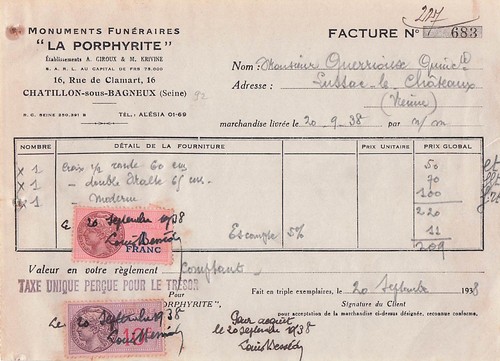 217
MONUMENTS FUNÉRAIRES
"LA PORPHYRITE"
Établissements A. GIROUX & M. KRIVINE
S. A. R. L. AU CAPITAL DE FRS 75.000
16, Rue de Clamart, 16
CHATILLON-sous-BAGNEUX (Seine)
R. C. SEINE 250.391 B TÉL. ALÉSIA 01-69
FACTURE N° 7 683
Nom : Monsieur Guerrioux
Adresse : Lussac-le-Châteaux
(Vienne)
marchandise livrée le 20-9-38 par n/m
NOMBRE DÉTAIL DE LA FOURNITURE PRIX UNITAIRE PRIX GLOBAL
x 1 Croix 1/2 ronde 60 cm 50
x 1 - double 65 cm - 70
x 1 Moderne 100
220
Escompte 5% 11
209
le 20 septembre 1938
FRANC
Valeur en votre règlement Comptant
TAXE UNIQUE PERÇUE POUR LE TRÉSOR
Fait en triple exemplaires, le 20 Septembre 1938
Pour
PORPHYRITE",
Signature du Client
pour acceptation de la marchandise ci-dessus désignée, reconnue conforme,
Le 20 septembre 1938
Pour acquit
le 20 septembre 1938